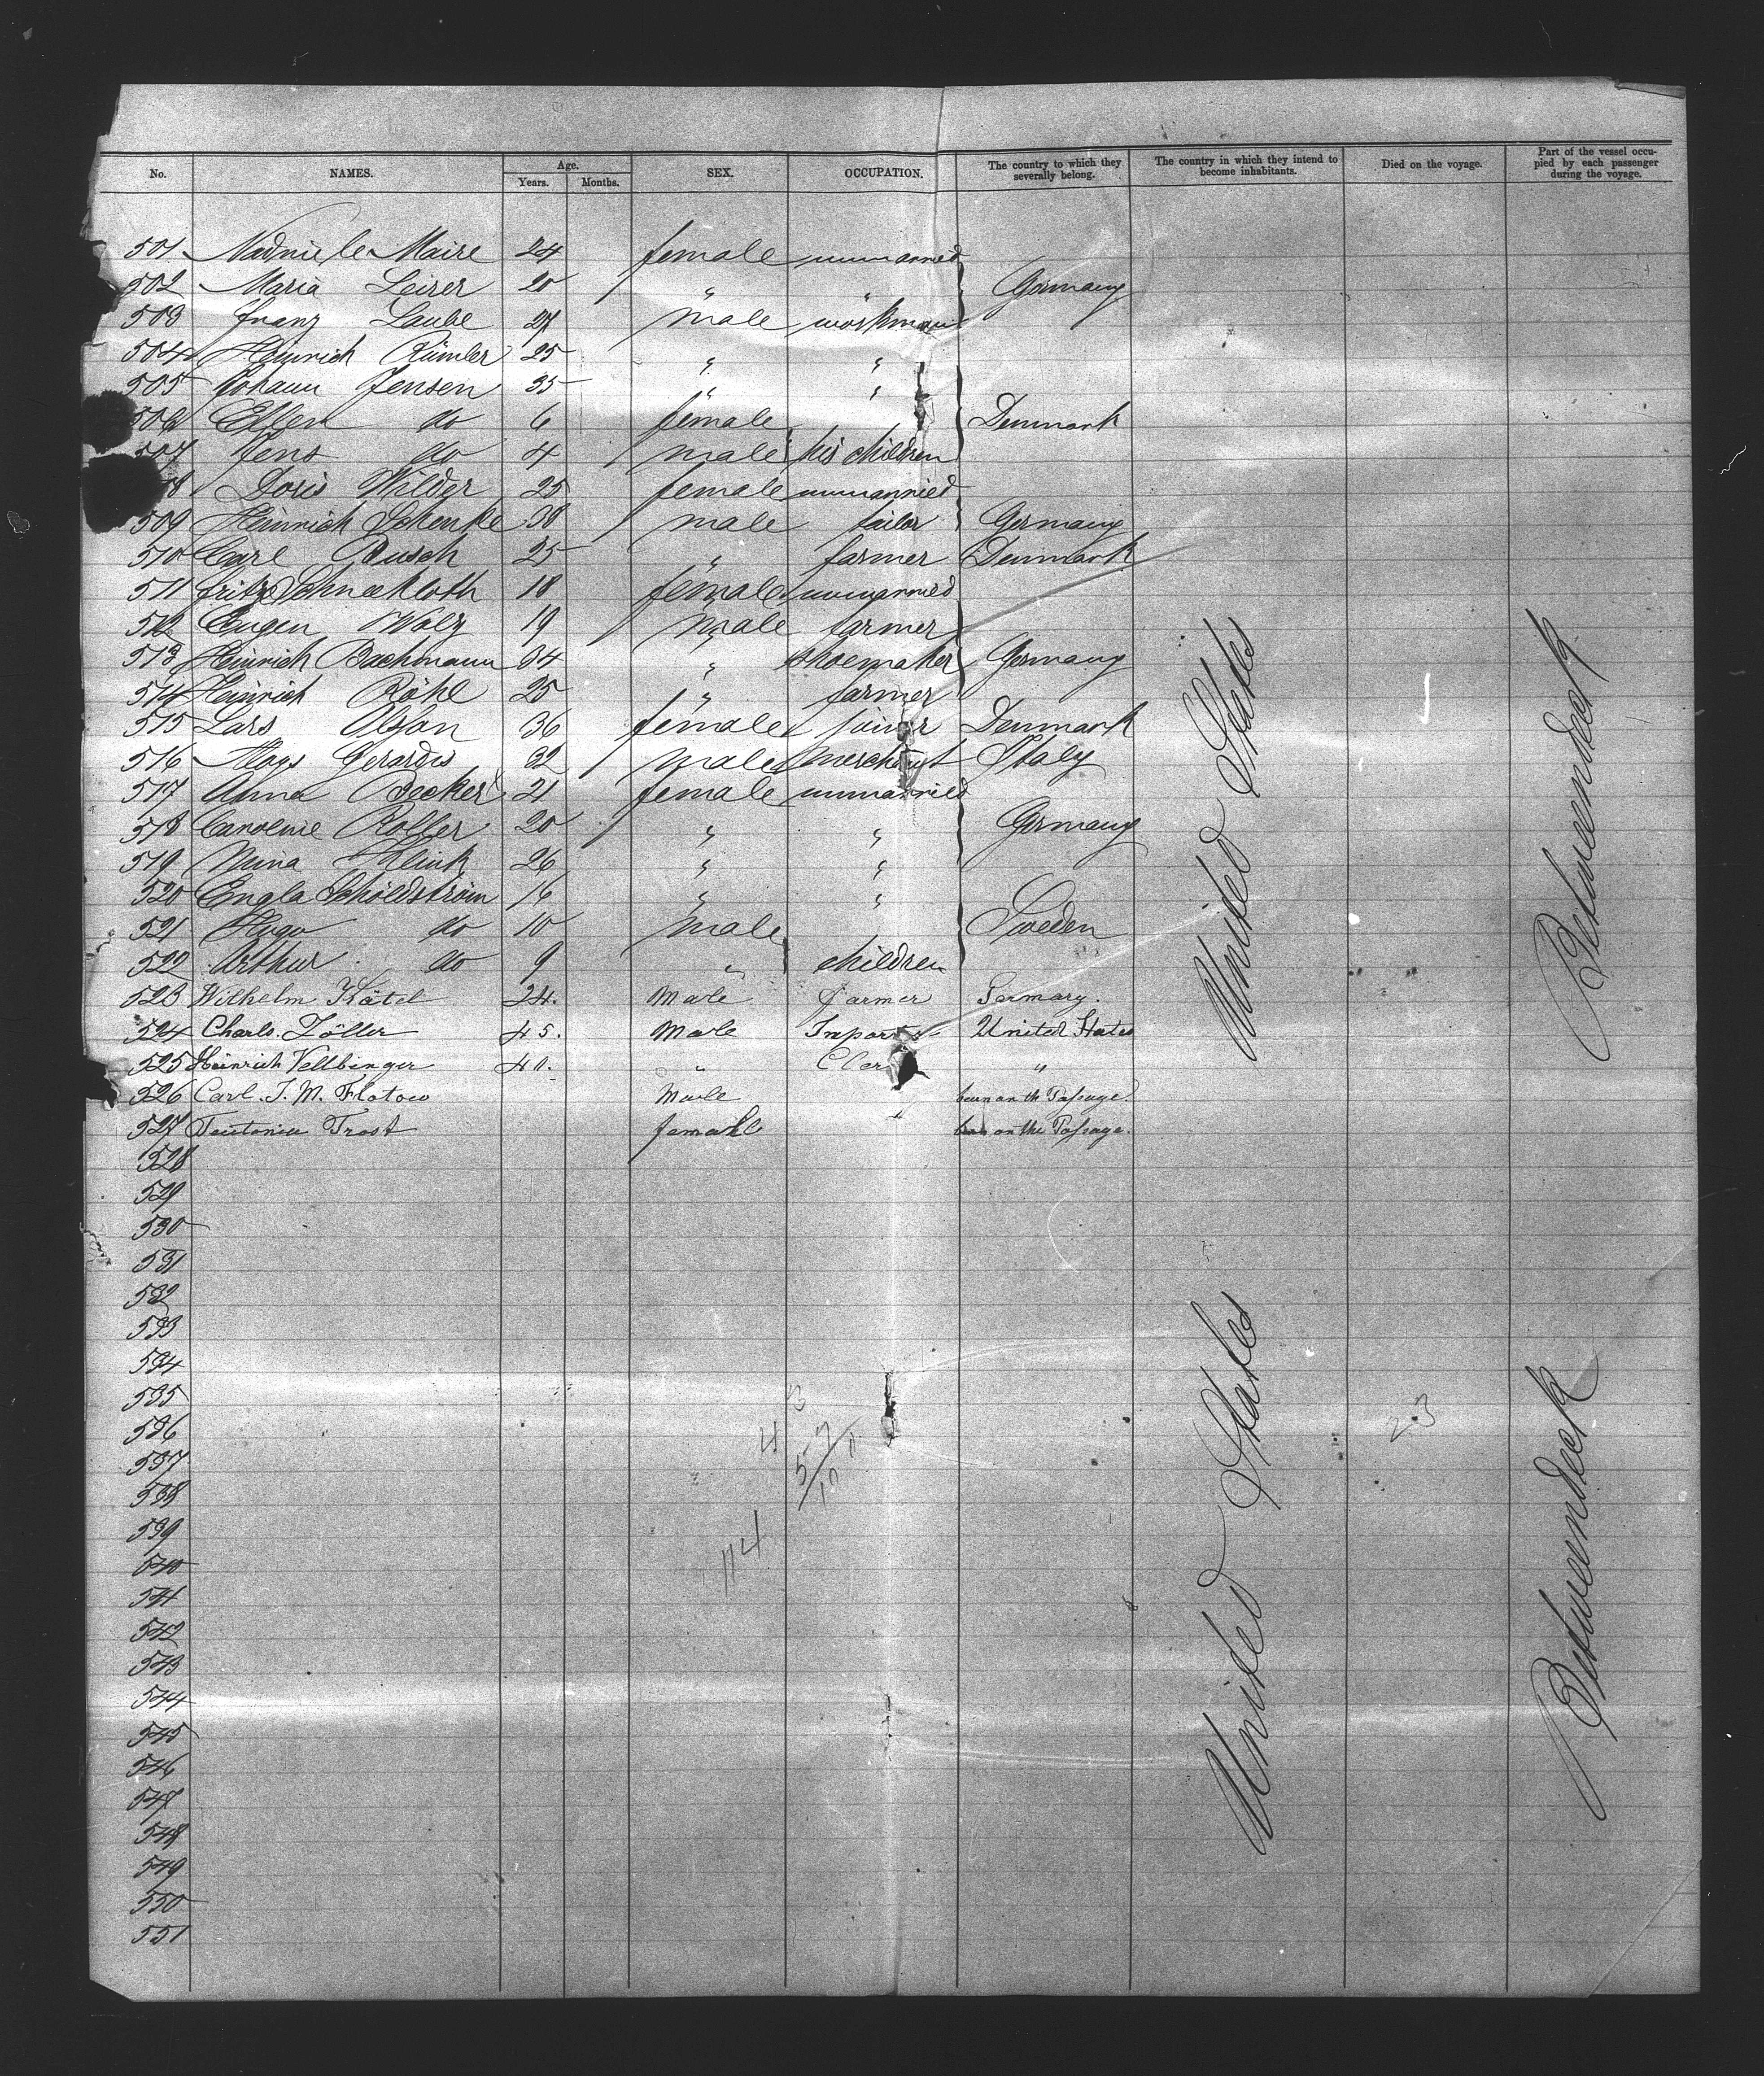 No. NAMES. Age. Years. Months. SEX. OCCUPATION. The country to which they severally belong. The country in which they intend to become inhabitants. Died on the voyage. Part of the vessel occupied by each passenger during the voyage.
501 le Maire 24 female unmarried
502 Maria Leirer 20 " " Germany
503 Franz Laube 27 male workman
504 Heinrich Rümler 25 " "
505 Johann Jensen 35 " "
506 Ellen do 6 female Denmark
507 Jens do 4 male his children
8 Doris Wilder 25 female unmarried
509 Heinrich Schenke 38 male tailor Germany
510 Carl Rusch 25 " farmer Denmark
511 Fritze Schneekloth 18 female unmarried
512 Eugen Walz 19 male farmer
513 Heinrich Bachmann 34 " shoemaker Germany
514 Heinrich Röhl 25 " farmer
515 Lars Olsson 36 female joiner Denmark
516 Alogs Gerardis 32 male merchant Italy
517 Anna Becker 21 female unmarried
518 Caroline Roller 20 " " Germany
519 Mina Klink 26 " "
520 Engla Schöldström 16 " "
521 Hugo do 10 male Sweden
522 Arthur do 9 " children
523 Wilhelm Kätel 24. Male Farmer Germany.
524 Charls. Zöller 45. Male United States
525 Heinrich Vellbinger 40. " "
526 Carl. J. M. Flatow Male born on th Passage.
527 Teutonia Trost female born on the Passage.
528
529
530
531
532
533
534
535
536
537
538
539
540
541
542
543
544
545
546
547
548
549
550
551
United States
Betweendeck
United States
Betweendeck
23
114